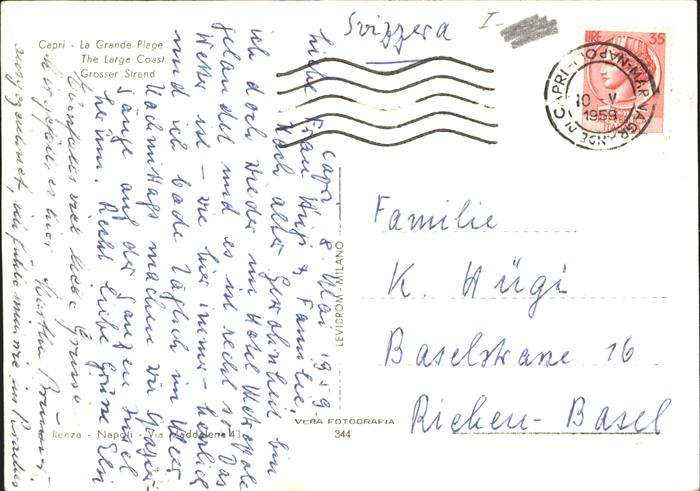 Svizzera
I-
LIRE 35
CAPRI-NAPOLI
MARINA GRANDE
10-V
1959
Capri - La Grande Plage
The Large Coast
Grosser Strand
Capri, 8 Mai 1959.
Liebe Frau Hügi & Familie,
Nach alter Gewohnheit bin
ich doch wieder im Hotel Metropole
gelandet und es ist recht so. Das
Wetter ist – wie hier immer – herrlich
und ich bade täglich im Meer
Nachmittags machen wir
Gänge auf der ganzen Insel
herum. Recht liebe Grüsse
viele liebe Grüsse
es hier
Familie
K. Hügi
Baselstrasse 16
Riehen-Basel
LEVICROM MILANO
VERA FOTOGRAFIA
344
Renza - Napoli - Via Maddalena 41